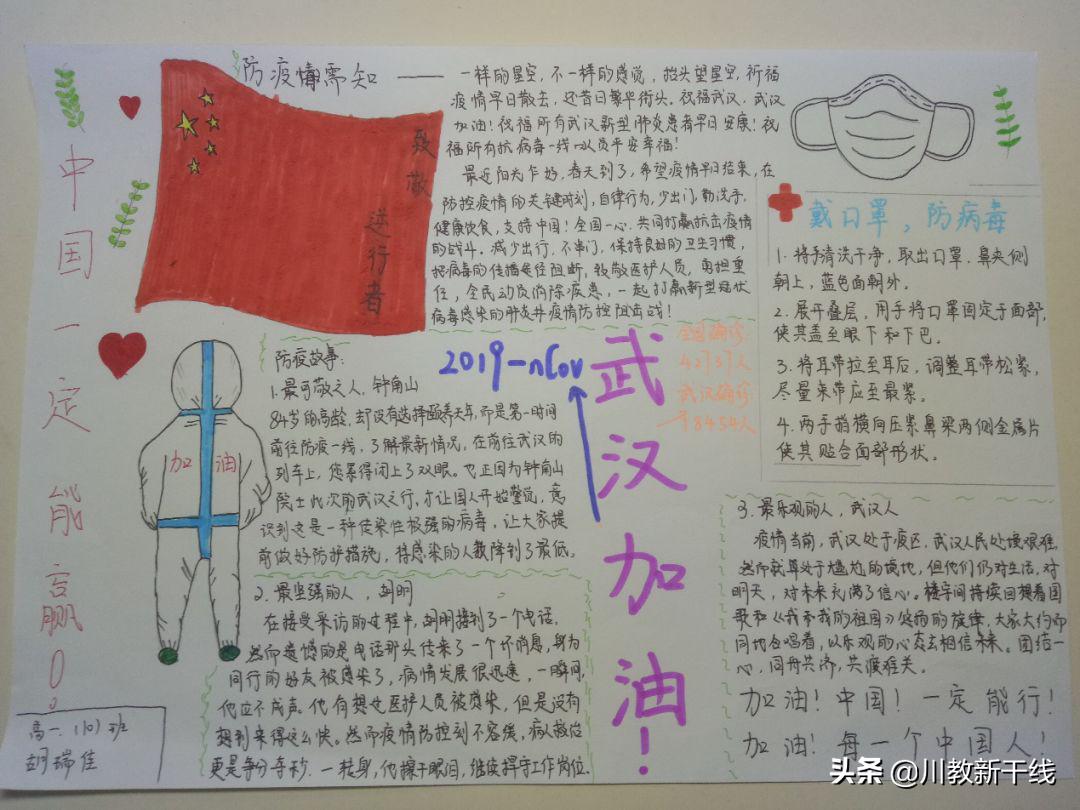 防疫情需知 ——
一样的星空，不一样的感觉，抬头望星空，祈福
疫情早日散去，还昔日繁华街头。祝福武汉，武汉
加油！祝福所有武汉新型肺炎患者早日安康！祝
福所有抗病毒一线人员平安幸福！
最近阳光乍好，春天到了，希望疫情早日结束，在
防控疫情的关键时刻，自律行为，少出门，勤洗手，
健康饮食，支持中国！全国一心，共同打赢抗击疫情
的战斗。减少出行，不串门，保持良好的卫生习惯，
把病毒的传播途径阻断，致敬医护人员，勇担重
任，全民动员消除疾患，一起打赢新型冠状
病毒感染的肺炎疫情防控阻击战！
致敬
逆行者
中国一定能赢！
戴口罩，防病毒
1. 将手清洗干净，取出口罩，鼻夹侧
朝上，蓝色面朝外。
2. 展开叠层，用手将口罩固定于面部，
使其盖至眼下和下巴。
3. 将耳带拉至耳后，调整耳带松紧，
尽量来带应至最紧。
4. 两手指横向压紧鼻梁两侧金属片
使其贴合面部形状。
加油
防疫故事：
1. 最可敬之人，钟南山
84岁的高龄，却没有选择颐养天年，而是第一时间
前往防疫一线，了解最新情况，在前往武汉的
列车上，您累得闭上了双眼。也正因为钟南山
院士此次的武汉之行，才让国人开始警觉，意
识到这是一种传染性极强的病毒，让大家提
前做好防护措施，将感染的人数降到了最低。
2019-nCov
全国确诊
42737人
武汉确诊
18454人
武汉加油！
2. 最坚强的人，胡明
在接受采访的过程中，胡明接到了一个电话，
然而遗憾的是电话那头传来了一个坏消息，身为
同行的好友被感染了，病情发展很迅速，一瞬间，
他泣不成声。他有想过医护人员被感染，但是没有
想到来得这么快。然而疫情防控刻不容缓，病人救治
更是争分夺秒，一转身，他擦干眼泪，继续捍守工作岗位。
3. 最乐观的人，武汉人
疫情当前，武汉处于疫区，武汉人民处境艰难，
然而就算处于尴尬的境地，但他们仍对生活，对
明天，对未来充满了信心。楼宇间持续回想着国
歌和《我和我的祖国》的旋律，大家大约即
同地合唱着，以乐观的心态去相信未来。团结一
心，同舟共济，共渡难关。
加油！中国！一定能行！
加油！每一个中国人！
高一.(10)班
胡瑞佳
头条 @川教新干线